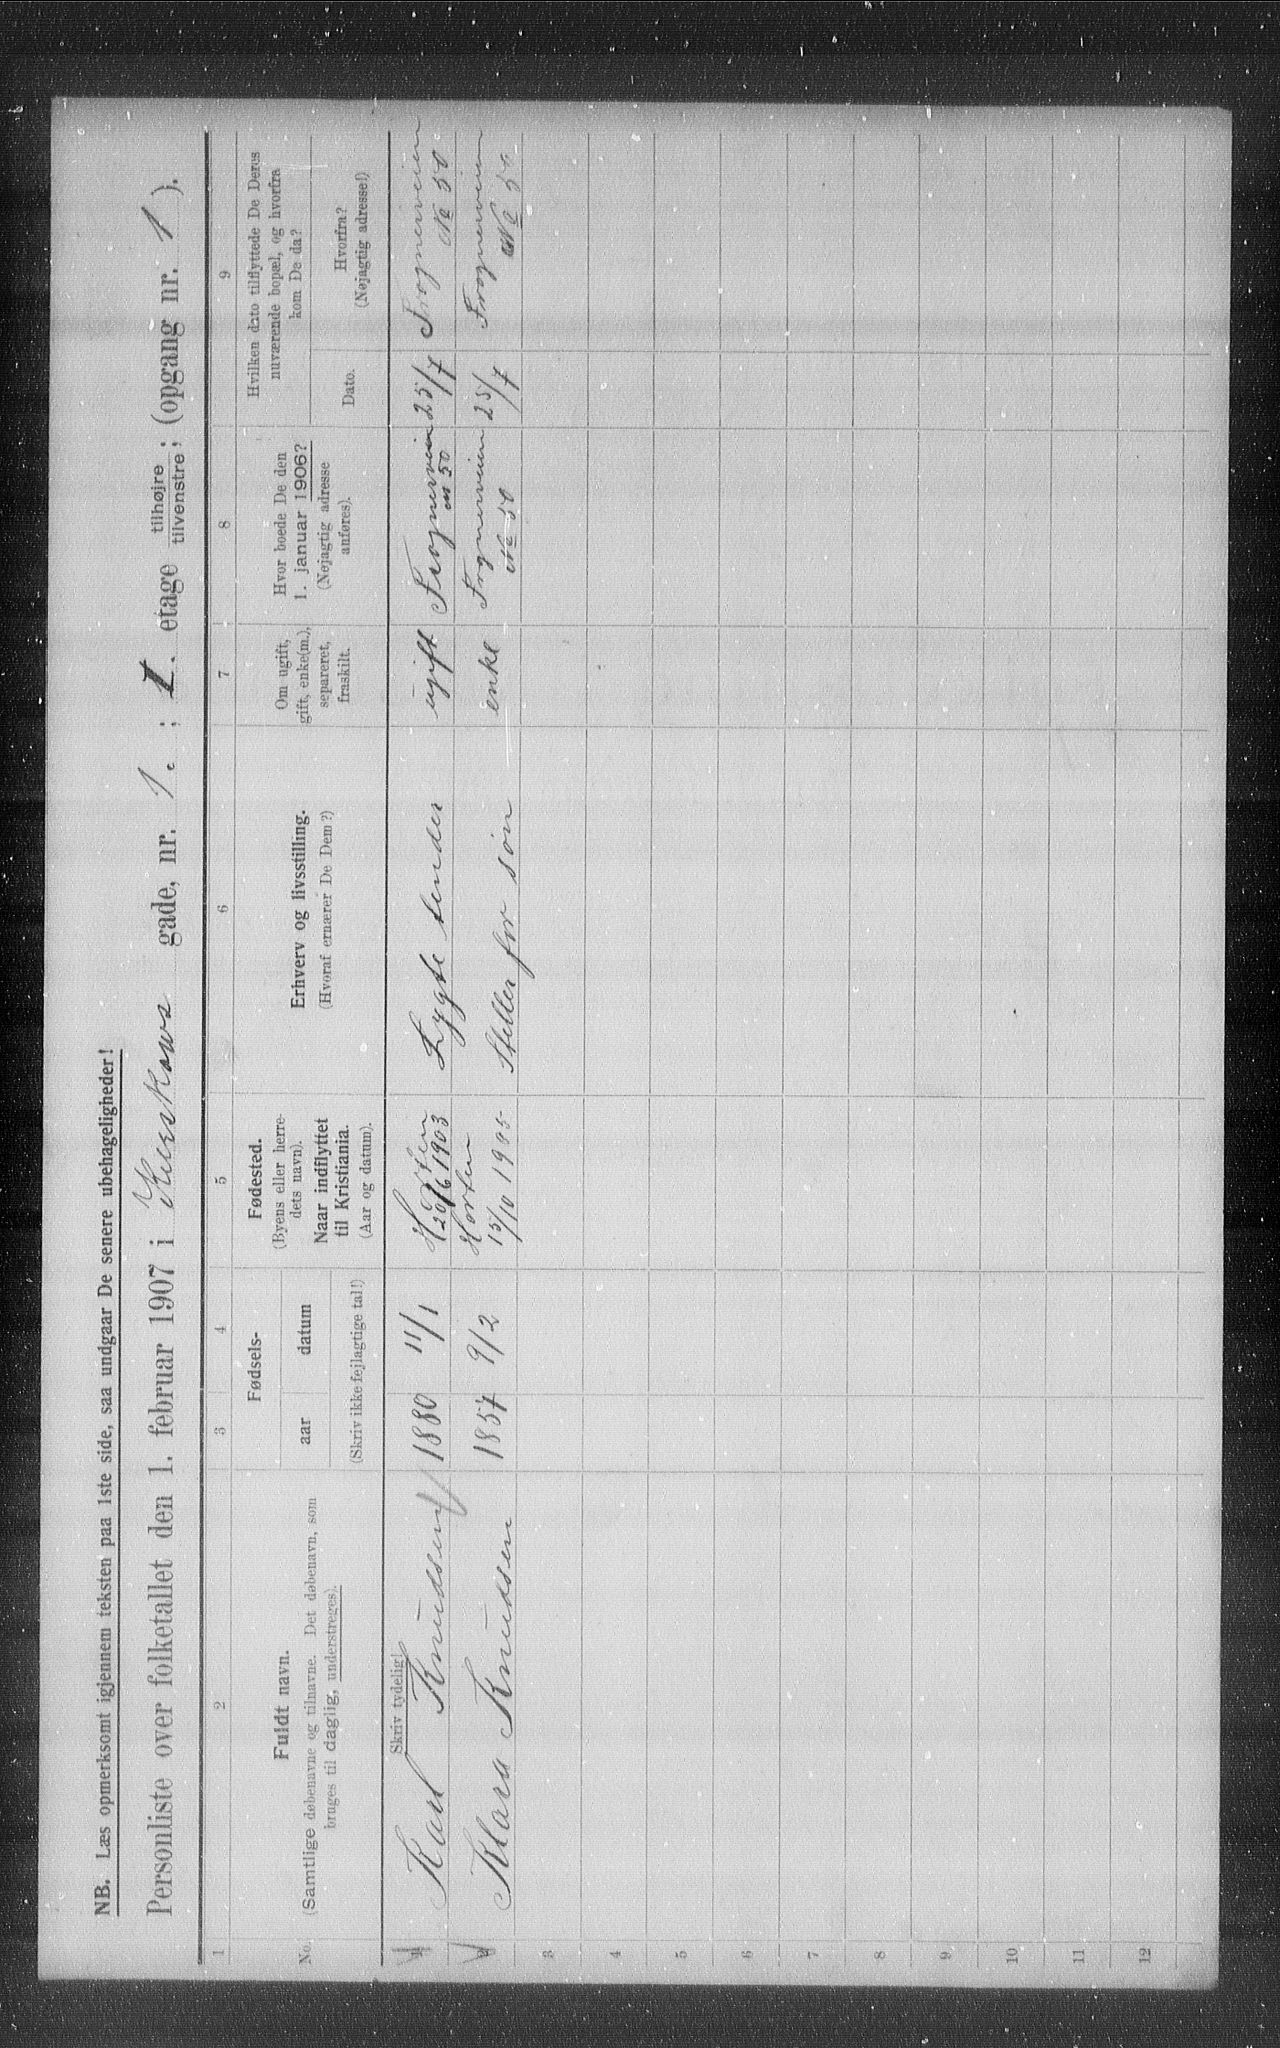 NB. Læs opmerksomt igjennem teksten paa 1ste side, saa undgaar De senere ubehageligheder!
Personliste over folketallet den 1. februar 1907 i gade, nr. 1. ; I. etage tilhøjre tilvenstre; (opgang nr. 1 ).
1 2 3 4 5 6 7 8 9
No.
Fuldt navn.
(Samtlige døbenavne og tilnavne. Det døbenavn, som
bruges til daglig, understreges).
Fødsels-
aar datum
(Skriv ikke fejlagtige tal!)
Fødested.
(Byens eller herre-
dets navn).
Naar indflyttet
til Kristiania.
(Aar og datum).
Erhverv og livsstilling.
(Hvoraf ernærer De Dem?)
Om ugift,
gift, enke(m.),
separeret,
fraskilt.
Hvor boede De den
1. januar 1906?
(Nøjagtig adresse
anføres).
Hvilken dato tilflyttede De Deres
nuværende bopæl, og hvorfra
kom De da?
Dato.
Hvorfra?
(Nøjagtig adresse!)
Skriv tydelig!
1 Karl Knudsen 1880 11/1 Horten 20/6 1903 Lygte tender ugift Frognerveien No 50 25/7 Frognerveien No 50
2 Klara Knudsen 1857 9/2 Horten 15/10 1905 Steller for søn enke Frognerveien No 50 25/7 Frognerveien No 50
3
4
5
6
7
8
9
10
11
12